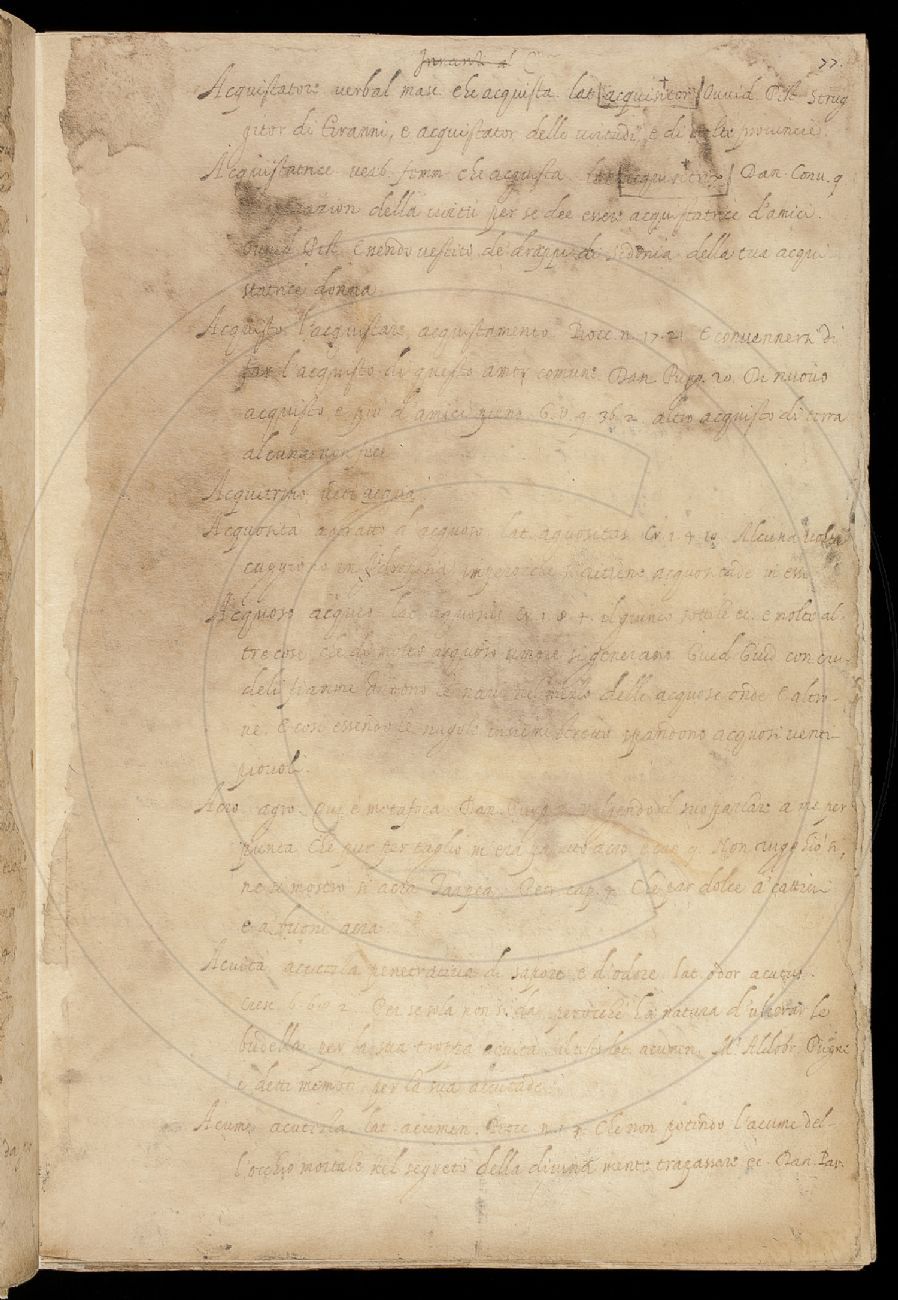 77.
Acquistatore verbal masc. che acquista. lat. acquisitor Ovvid. Pist. Strug
gitor di Tiranni, e acquistator delle virtudi, e di molte provincie.
Acquistatrice verb. femm. che acquista. lat. acquisitrix Dan. Conv. 9
della virtù per se dee essere acquistatrice d'amici.
Ovvid. Pist. Essendo vestito de' drappi di Sidonia della tua acqui
statrice donna
Acquisto l'acquistare, acquistamento. Bocc. n. 17. 21. E convennerà di
far l'acquisto di questo amor comune. Dan. Purg. 20. Di nuovo
acquisto e più d'amici piena. G. V. 9. 36. 2. altro acquisto di terra
alcuna non fece
Acquitrino vedi acqua.
Acquosità astratto d'acquoso. lat. aquositas Cr. 1. 4. 10. Alcuna volta
imperocchè acquositade in essi
Acquoso acqueo. lat. aquosus Cr. 1. 8. 4. il giunco sottile ec. e molte al-
tre cose che di molto acquoso umore si generano. Guid. Guid. con cru-
deli fiamme le navi nel mezzo delle acquose onde. E altro-
ve. E così essendo le nugole insieme spandono acquosi venti
piovoli.
Acro. agro. Qui è metafora. Dan. Purg. volgendo il suo parlare a me per
punta Che pur per taglio m'era paruto acro. e can. 9. Non ruggio sì,
ne si mostrò sì acra Tarpea. Petr. cap. Che par dolce a' cattivi
e a' buoni acra
Acuità. acutezza penetrativa di sapore e d'odore. lat. odor acutus.
Cresc. 6. 60. 2. Per se sola non si dà, perocchè ha natura d'ulcerar le
budella per la sua troppa acuità. lat. acumen. M. Aldobr. Pugne
i detti membri per la sua acuitade.
Acume. acutezza. lat. acumen. Bocc. n. 1. Che non potendo l'acume del-
l'occhio mortale nel segreto della divina mente trapassare ec. Dan. Par.